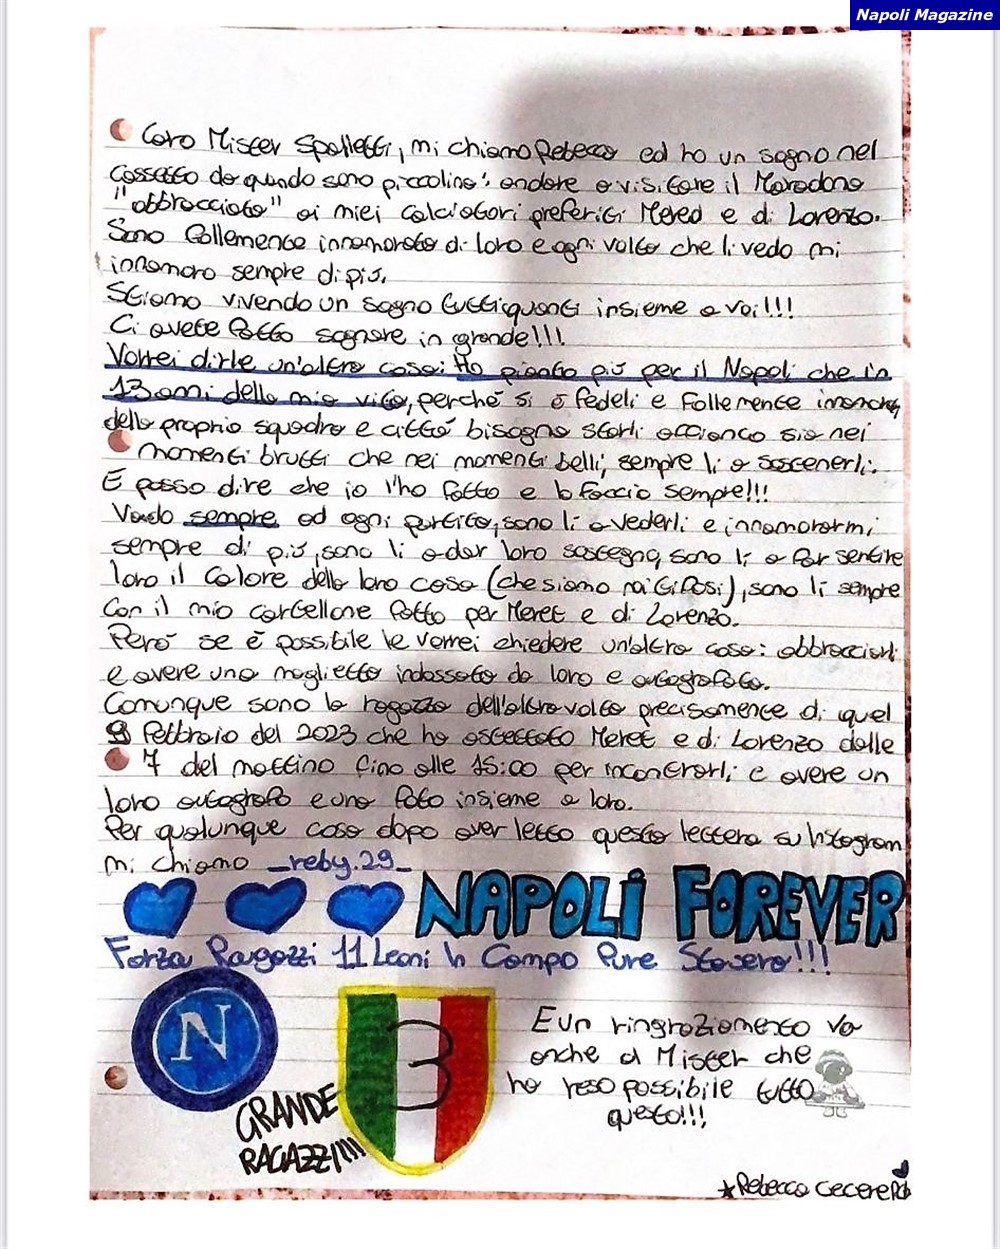 Napoli Magazine
Caro Mister Spalletti, mi chiamo Rebecca ed ho un sogno nel
cassetto da quando sono piccolina: andare a visitare il Maradona
"abbracciata" ai miei calciatori preferiti Meret e di Lorenzo.
Sono follemente innamorata di loro e ogni volta che li vedo mi
innamoro sempre di più.
Stiamo vivendo un sogno tutti quanti insieme a voi!!!
Ci avete fatto sognare in grande!!!
Vorrei dirle un'altra cosa: Ho pianto più per il Napoli che in
13 anni della mia vita, perché si è fedeli e follemente
della propria squadra e città bisogna starli accianco sia nei
momenti brutti che nei momenti belli, sempre li a sostenerli.
E posso dire che io l'ho fatto e lo faccio sempre!!!
Vado sempre ad ogni partita, sono li a vederli e innamorarmi
sempre di più, sono li a dar loro sostegno, sono li a far sentire
loro il calore della loro casa (che siamo noi tifosi), sono li sempre
con il mio cartellone fatto per Meret e di Lorenzo.
Però se è possibile le vorrei chiedere un'altra cosa: abbracciarli
e avere una maglietta indossata da loro e autografata.
Comunque sono la ragazza dell'altra volta precisamente di quel
9 Febbraio del 2023 che ha aspettato Meret e di Lorenzo dalle
7 del mattino fino alle 15:00 per incontrarli e avere un
loro autografo e una foto insieme a loro.
Per qualunque cosa dopo aver letto questa lettera su Instagram
mi chiamo _reby.29_
NAPOLI FOREVER
Forza Ragazzi 11 Leoni in Campo Pure Stasera!!!
N
3
GRANDE
RAGAZZI!!!!
E un ringraziamento va
anche al Mister che
ha reso possibile tutto
questo!!!
Rebecca Cecere